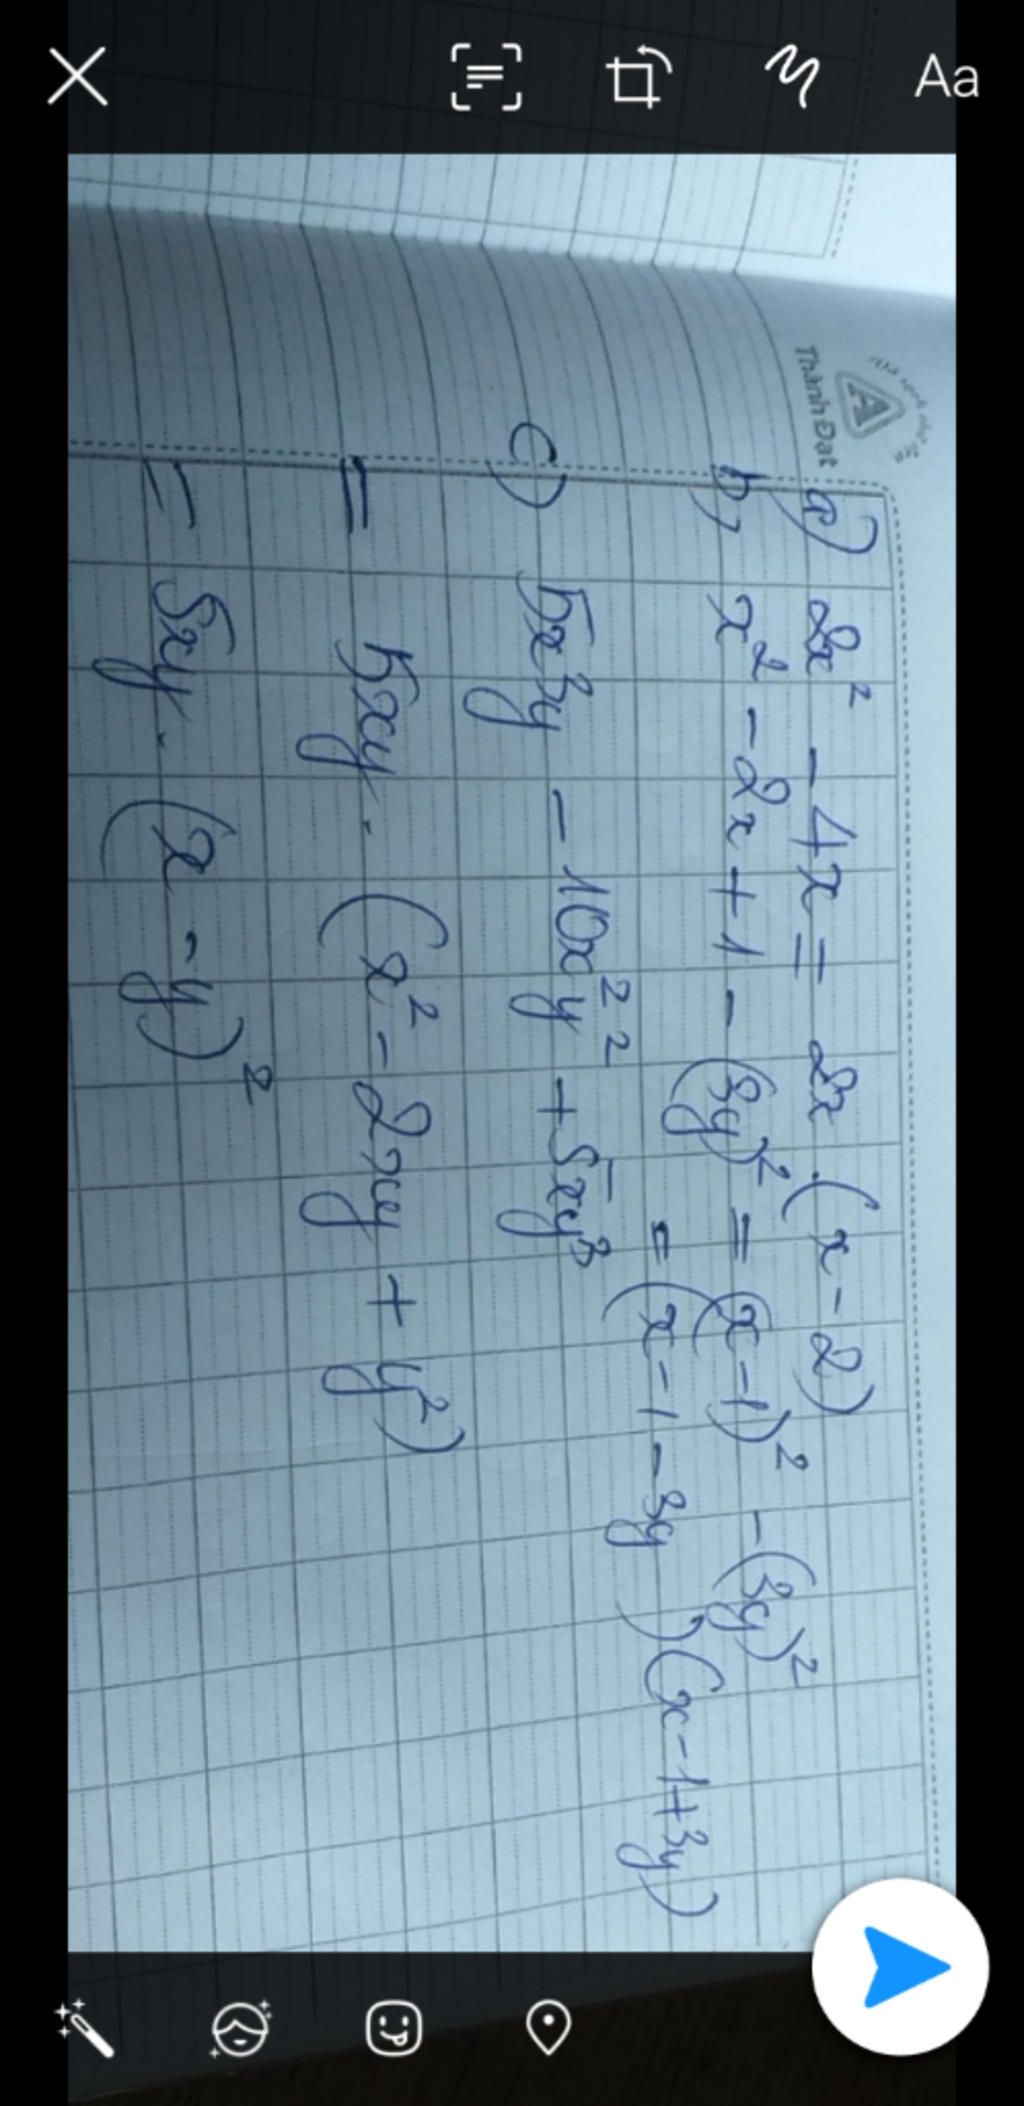 Aa
Thành Đạt
a) 2x² - 4x = 2x . (x - 2)
b, x² - 2x + 1 - (3y)² = (x - 1)² - (3y)²
= (x - 1 - 3y)(x - 1 + 3y)
c) 5x³y - 10x²y² + 5xy³
= 5xy . (x² - 2xy + y²)
= 5xy . (x - y)²